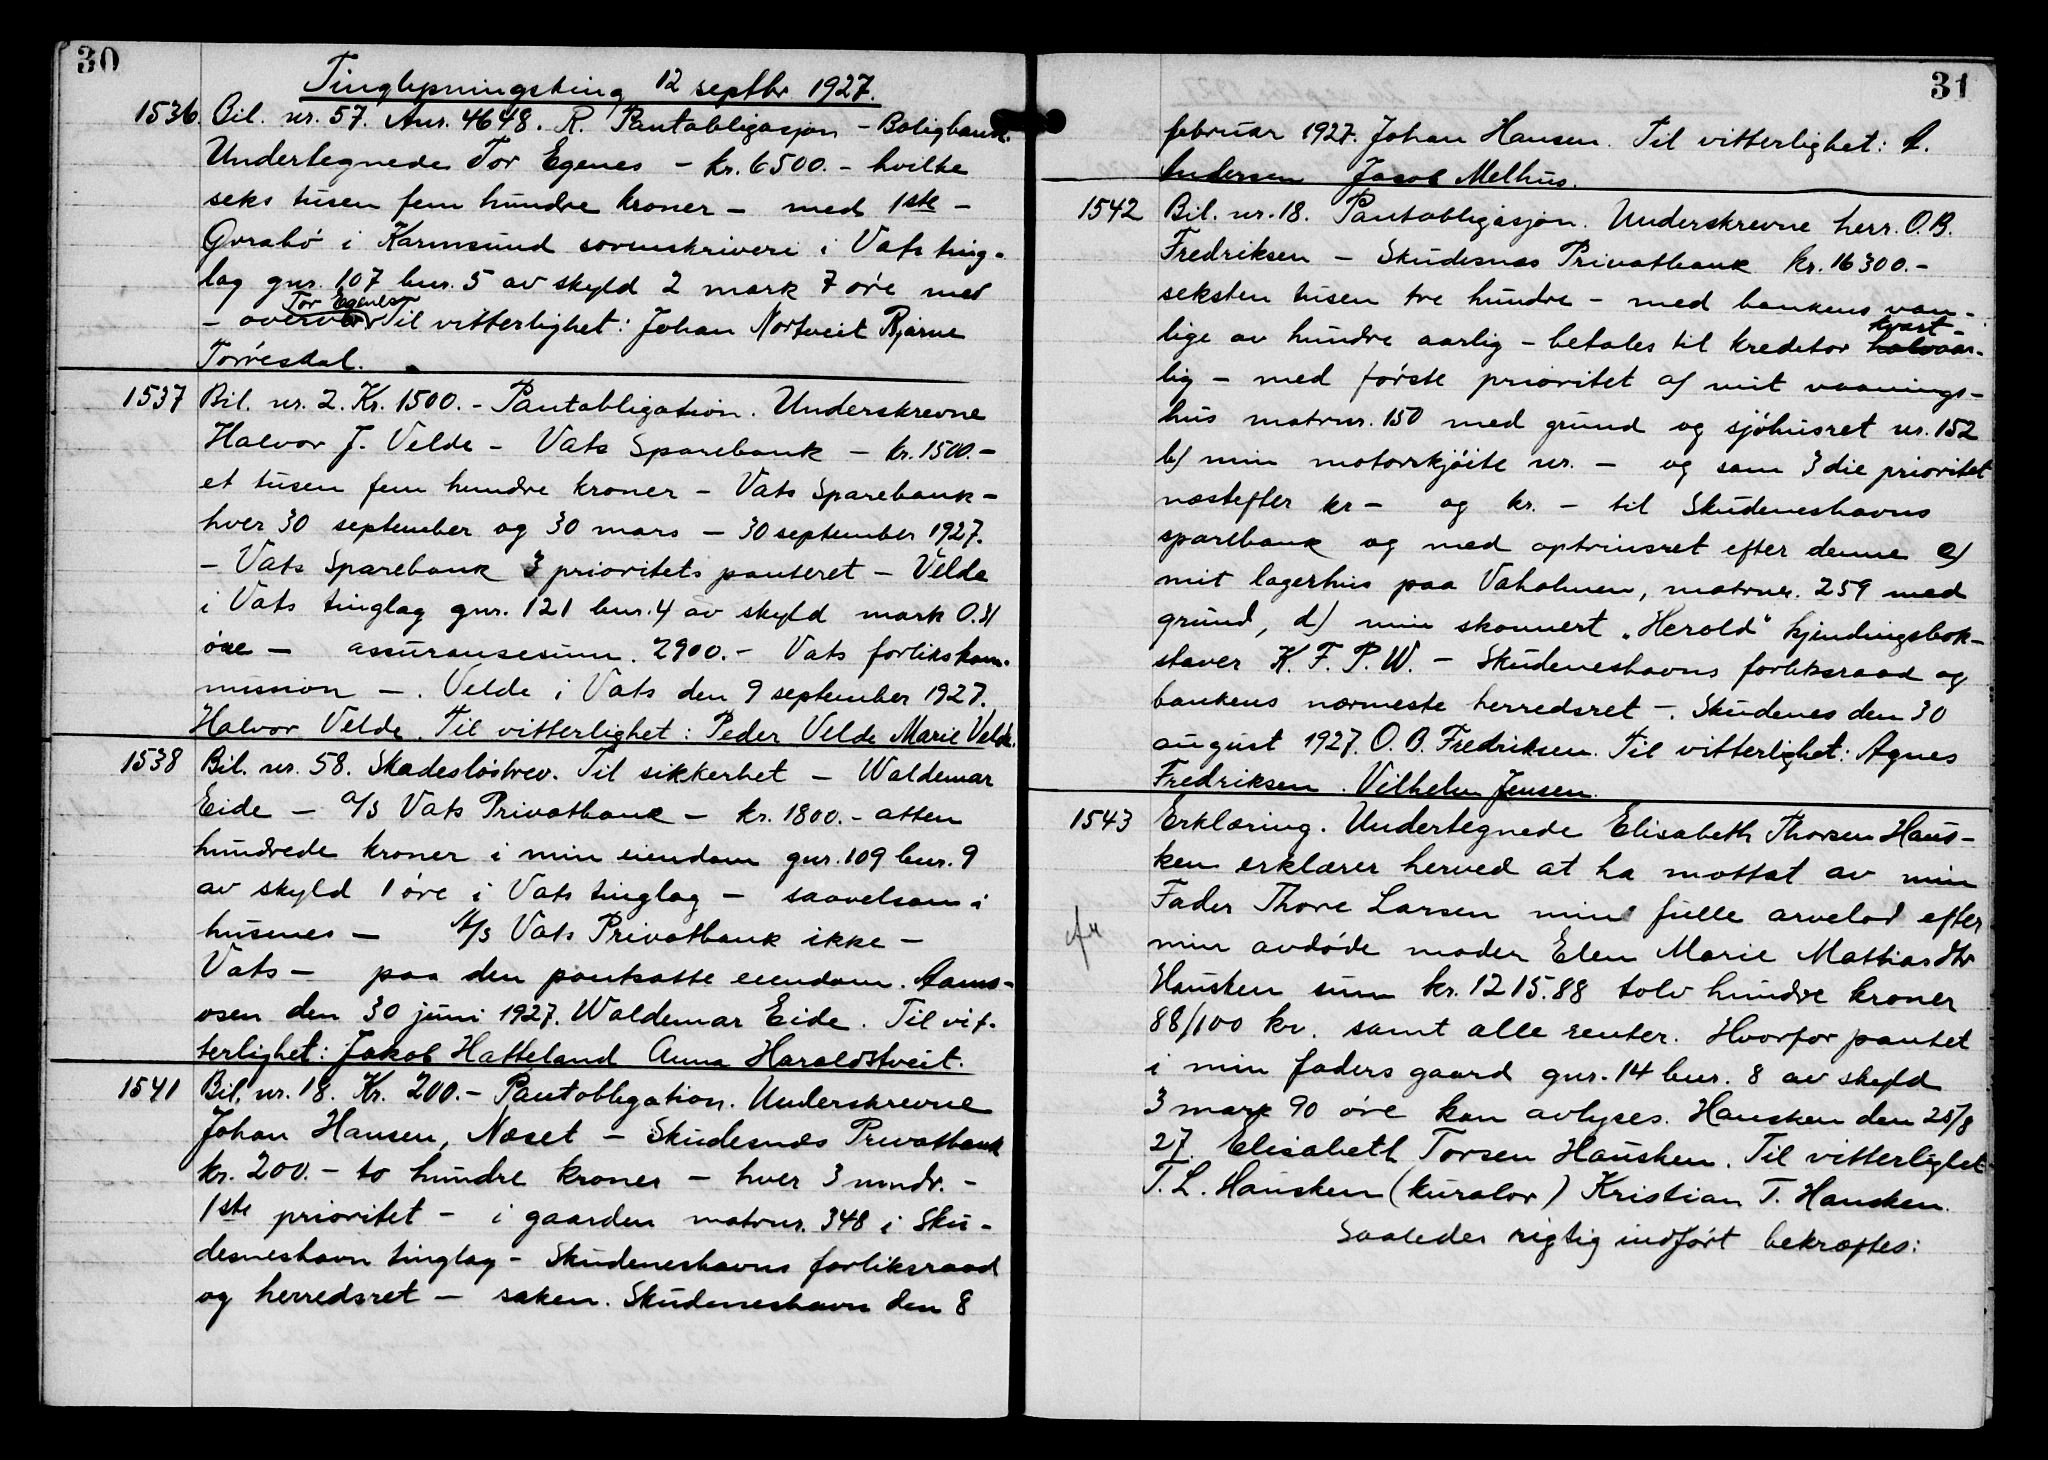 30
Tinglysningsting 12 septbr 1927.
1536. Bil. nr. 57. Anr. 4648. R. Pantobligasjon - Boligbank.
Undertegnede Tor Egenes - kr. 6500.- hvilke
seks tusen fem hundre kroner - med 1ste -
Gvrabö i Karmsund sorenskriveri i Vats ting-
lag gnr. 107 bnr. 5 av skyld 2 mark 7 øre med
Tor Egenes
- overvær Til vitterlighet: Johan Nortveit Bjarne
Torresdal.
1537 Bil. nr. 2. Kr. 1500.- Pantobligation. Underskrevne
Halvor J. Velde - Vats Sparebank - kr. 1500.-
et tusen fem hundre kroner - Vats Sparebank -
hver 30 september og 30 mars - 30 september 1927.
- Vats Sparebank 3 prioritets panteret - Velde
i Vats tinglag gnr. 121 bnr. 4 av skyld mark 0.31
øre - assuransesum. 2900.- Vats forlikskom-
mission -. Velde i Vats den 9 september 1927.
Halvor Velde. Til vitterlighet: Peder Velde Marie Velde.
1538 Bil. nr. 58. Skadesløsbrev. Til sikkerhet - Waldemar
Eide - A/S Vats Privatbank - kr. 1800.- atten
hundrede kroner i min eiendom gnr. 109 bnr. 9
av skyld 1 øre i Vats tinglag - saavelsom i
husenes - A/S Vats Privatbank ikke -
Vats - paa den pantsatte eiendom. Aams-
osen den 30 juni 1927. Waldemar Eide. Til vit-
terlighet: Jakob Hatteland Anna Haraldstveit.
1541 Bil. nr. 18. Kr. 200.- Pantobligation. Underskrevne
Johan Hansen, Næset - Skudesnæs Privatbank
kr. 200.- to hundre kroner - hver 3 mndr. -
1ste prioritet - i gaarden matrnr. 348 i Sku-
desneshavn tinglag - Skudeneshavns forliksraad
og herredsret - saken. Skudeneshavn den 8
31
februar 1927. Johan Hansen. Til vitterlighet: A.
Andersen Jacob Melhus.
1542 Bil. nr. 18. Pantobligasjon. Underskrevne herr. O.B.
Fredriksen - Skudesnæs Privatbank kr. 16300.-
seksten tusen tre hundre - med bankens van-
kvart-
lige av hundre aarlig - betales til kreditor halvaar-
lig - med förste prioritet a) mit vaanings-
hus matrnr. 150 med grund og sjöhusret nr. 152
b) min motorskjöite nr. - og som 3die prioritet
næstefter kr - og kr. - til Skudeneshavns
sparebank og med optrinsret efter denne c)
mit lagerhus paa Vaholmen, matrnr. 259 med
grund, d) min skonnert "Herold" kjendingsbok-
staver K. F. P. W. - Skudeneshavns forliksraad og
bankens nærmeste herredsret -. Skudenes den 30
august 1927. O. B. Fredriksen. Til vitterlighet: Agnes
Fredriksen. Vilhelm Jensen.
1543 Erklæring. Undertegnede Elisabeth Thorsen Haus-
ken erklærer herved at ha mottat av min
Fader Thore Larsen min fulle arvelod efter
min avdøde moder Elen Marie Mathiasdtr
Hausken sum kr. 1215.88 tolv hundre kroner
88/100 kr. samt alle renter. Hvorfor pantet
i min faders gaard gnr. 14 bnr. 8 av skyld
3 mark 90 øre kan avlyses. Hausken den 25/8
27. Elisabeth Torsen Hausken. Til vitterlighet
T. L. Hausken (kurator) Kristian T. Hausken.
Saaledes rigtig indført bekræftes: